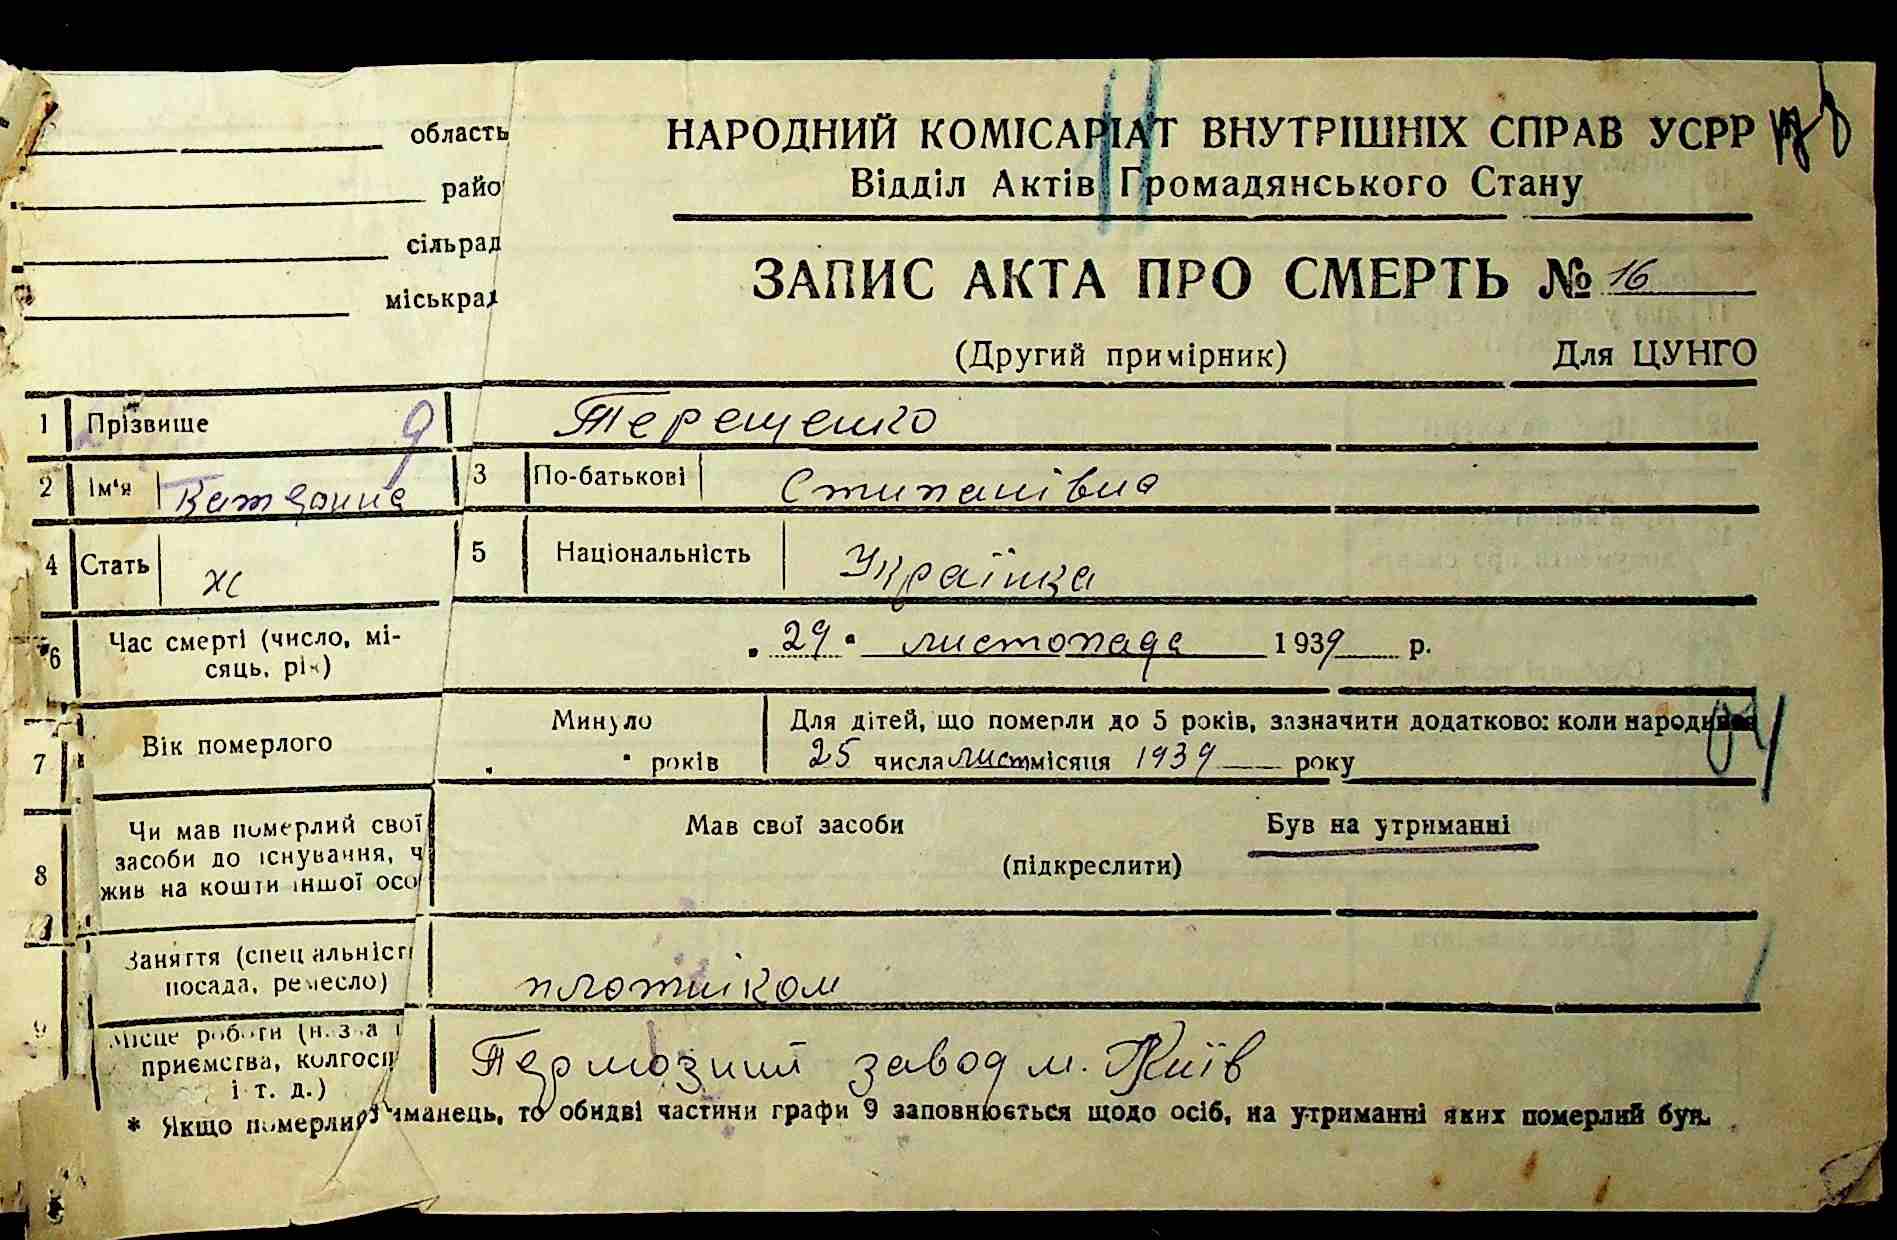 область
НАРОДНИЙ КОМІСАРІАТ ВНУТРІШНІХ СПРАВ УСРР
райо
Відділ Актів Громадянського Стану
сільрад
міськрад
ЗАПИС АКТА ПРО СМЕРТЬ № 16
(Другий примірник) Для ЦУНГО
1 Прізвище Терещенко
2 Ім'я Катерина 3 По-батькові Стипанівна
4 Стать ж 5 Національність Українка
6 Час смерті (число, мі-
сяць, рік) 29 листопада 1939 р.
7 Вік померлого Минуло
років
Для дітей, що померли до 5 років, зазначити додатково: коли народився
25 числа лист місяця 1939 року
8 Чи мав померлий свої
засоби до існування, ч
жив на кошти іншої осо
Мав свої засоби Був на утриманні
(підкреслити)
9 Заняття (спеціальніст
посада, ремесло) плотніком
Місце роботи (назва
приємства, колгосп
і т. д.) Термозний завод м. Київ
* Якщо померли утриманець, то обидві частини графи 9 заповнюється щодо осіб, на утриманні яких померлий був.